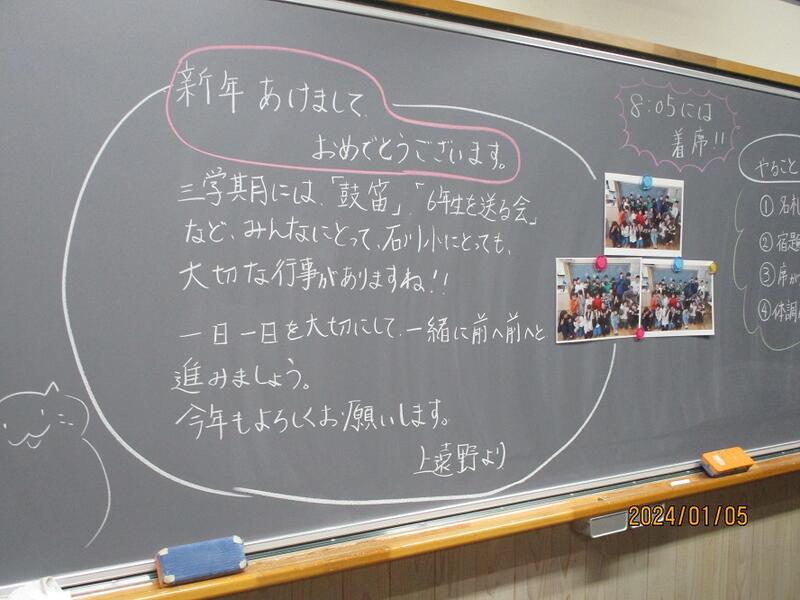 新年 あけまして、
おめでとうございます。
三学期には、「鼓笛」、「6年生を送る会」
など、みんなにとって、石川小にとっても、
大切な行事がありますね!!
一日一日を大切にして、一緒に前へ前へと
進みましょう。
今年もよろしくお願いします。
上遠野より
8:05には
着席!!
やること
① 名札
② 宿題
③ 席が
④ 体調
2024/01/05